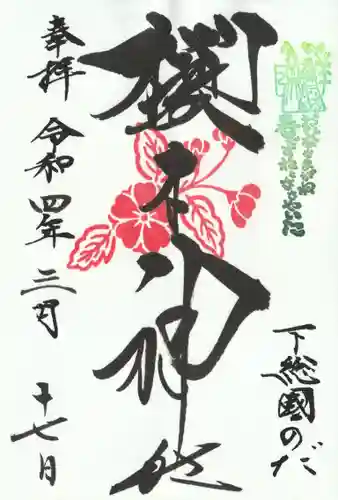 下総國のだ
櫻木神社
奉拝 令和四年 三月 十七日